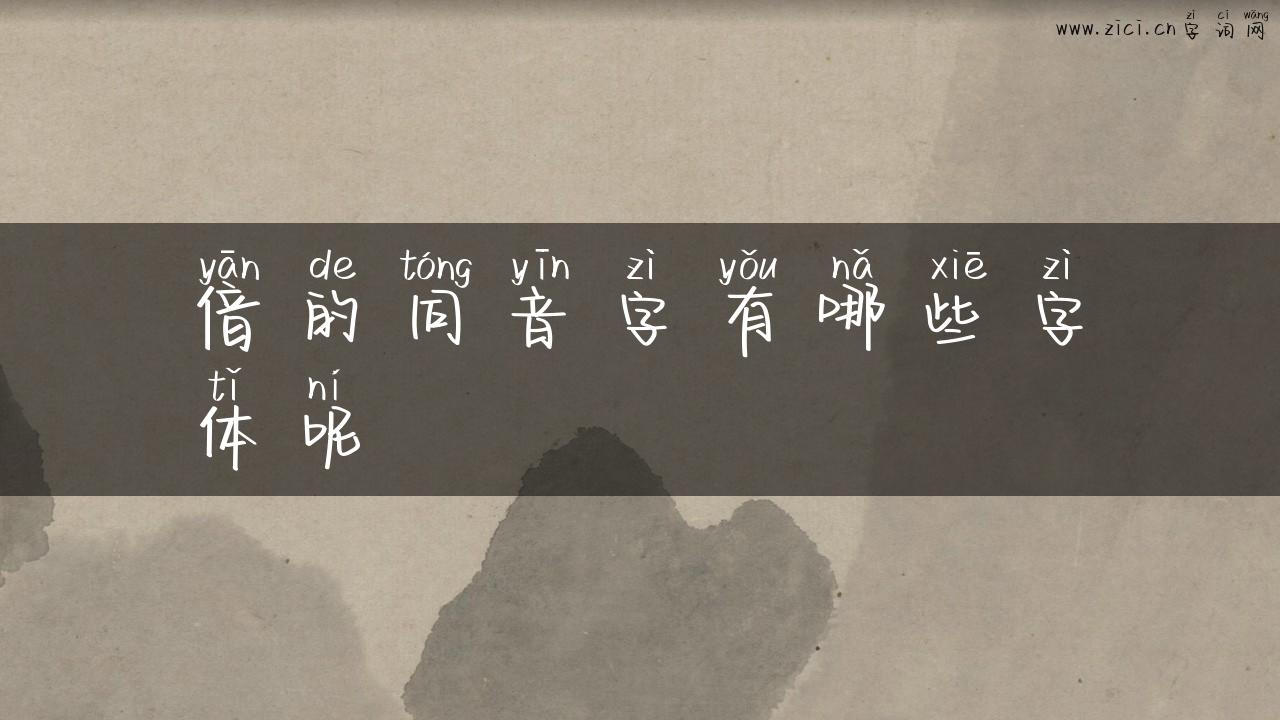 zì cí wǎng
www.zici.cn 字词网
yān de tóng yīn zì yǒu nǎ xiē zì
偣的同音字有哪些字
tǐ ní
体呢